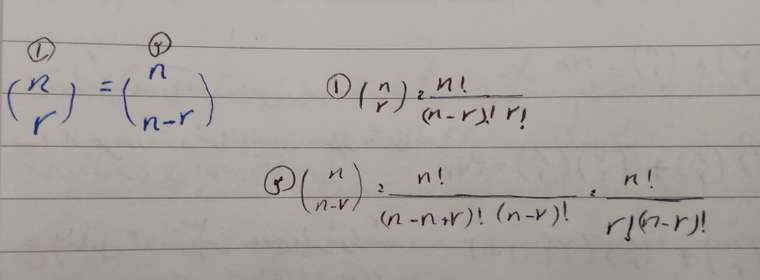 ① (n r) = ② (n n-r)
① (n r) = n! / (n-r)! r!
② (n n-r) = n! / (n-n+r)! (n-r)! = n! / r! (n-r)!